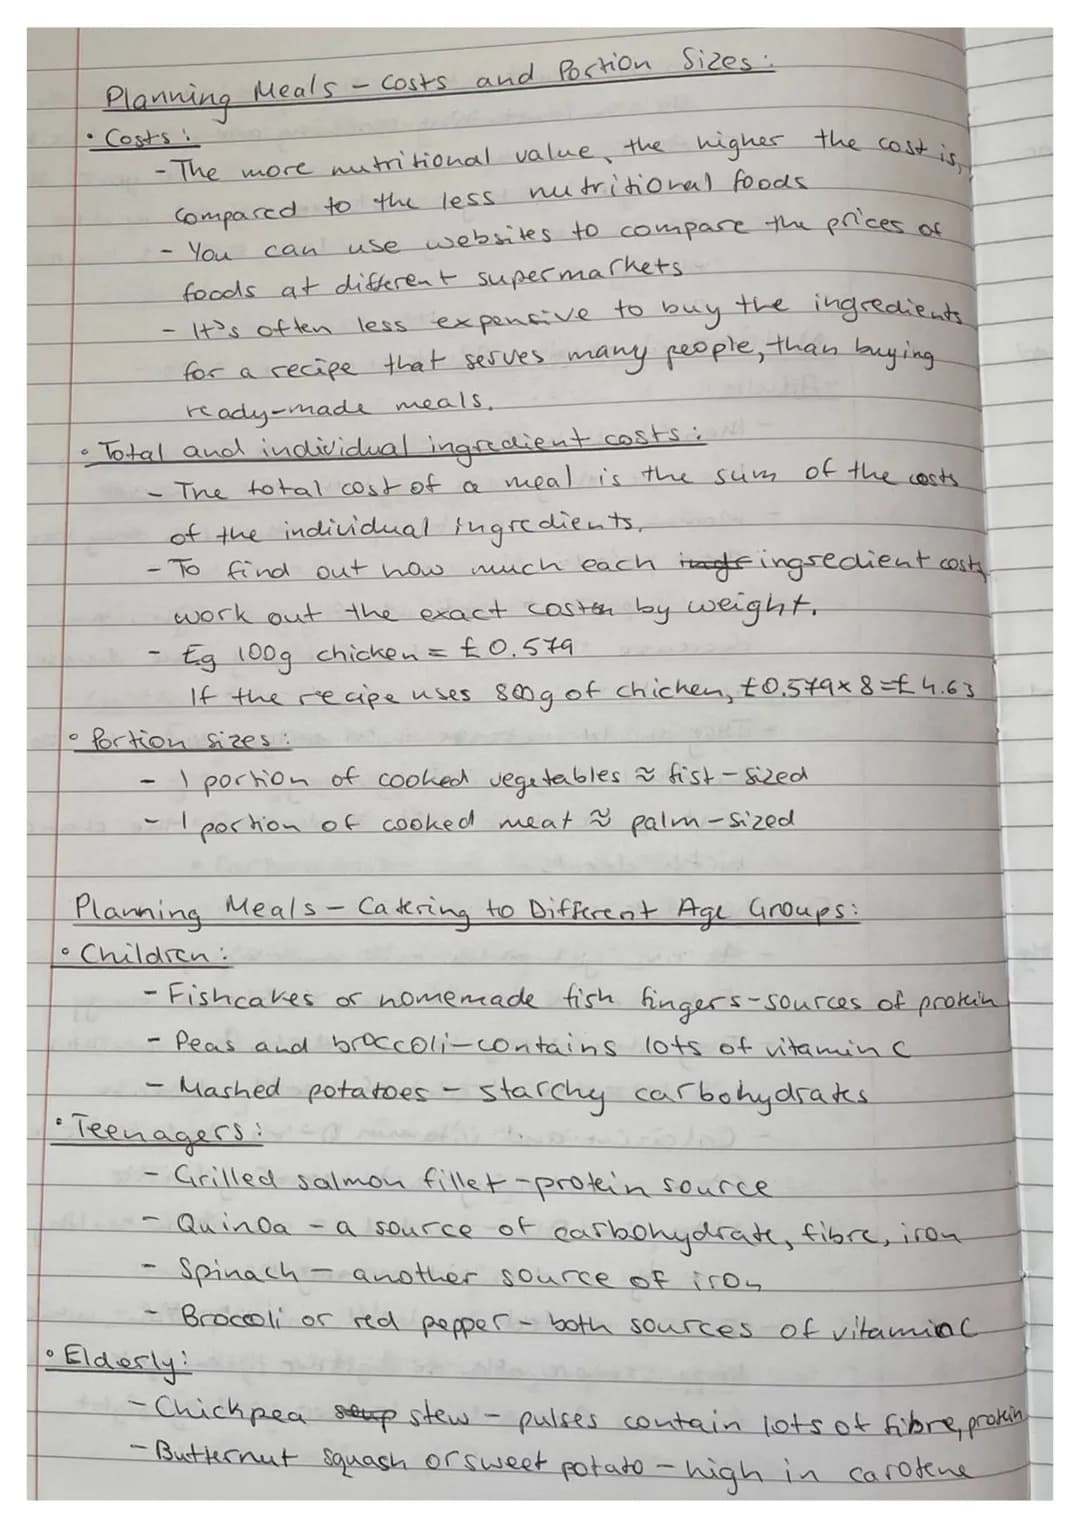 Planning Meals - Costs and Portion Sizes:
• Costs:
- The more nutritional value, the higher the cost is,
compared to the less nutritional foods
- You can use websites to compare the prices of
foods at different supermarkets
- It's often less expensive to buy the ingredients
for a recipe that serves many people, than buying
ready-made meals.
• Total and individual ingredient costs:
- The total cost of a meal is the sum of the costs
of the individual ingredients.
- To find out how much each ingredient costs
work out the exact cost by weight.
- Eg 100g chicken = £0.579
If the recipe uses 800g of chicken, £0.579×8=£4.63
• Portion sizes:
- 1 portion of cooked vegetables ≈ fist-sized
- 1 portion of cooked meat ≈ palm-sized
Planning Meals - Catering to Different Age Groups:
• Children:
- Fishcakes or homemade fish fingers - sources of protein
- Peas and broccoli - contains lots of vitamin C
- Mashed potatoes - starchy carbohydrates
• Teenagers:
- Grilled salmon fillet - protein source
- Quinoa - a source of carbohydrate, fibre, iron
- Spinach - another source of iron
- Broccoli or red pepper - both sources of vitamin C
• Elderly:
- Chickpea soup stew - pulses contain lots of fibre, protein
- Butternut squash or sweet potato - high in carotene